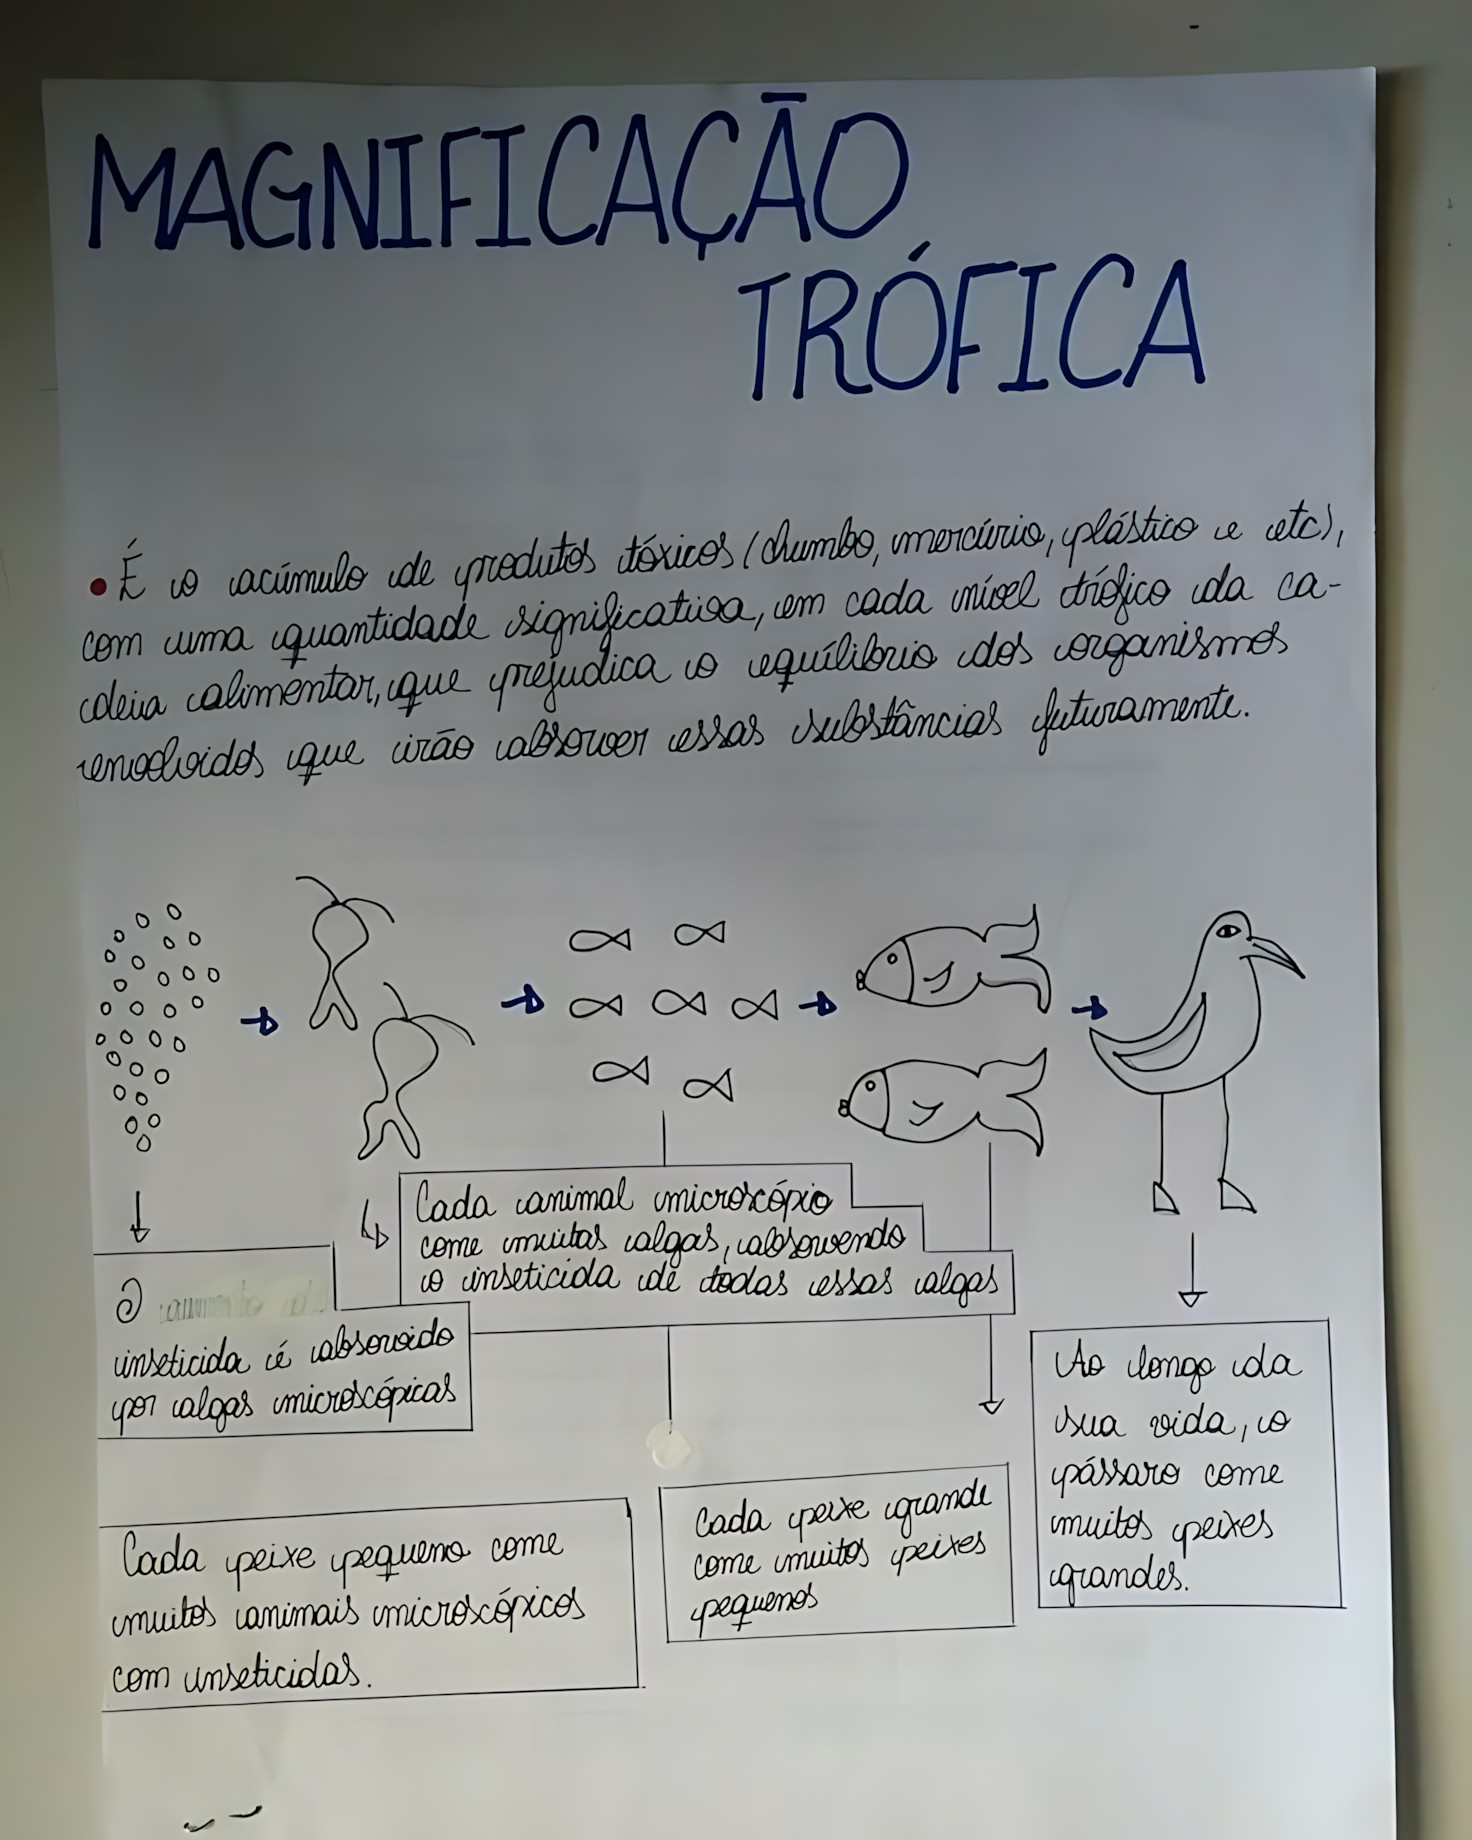 MAGNIFICAÇÃO
TRÓFICA
• É o acúmulo de produtos tóxicos (chumbo, mercúrio, plástico e etc),
com uma quantidade significativa, em cada nível trófico da ca-
deia alimentar, que prejudica o equilíbrio dos organismos
envolvidos que irão absorver essas substâncias futuramente.
Cada animal microscópio
come muitas algas, absorvendo
o inseticida de todas essas algas
O
inseticida é absorvido
por algas microscópicas
Ao longo da
sua vida, o
pássaro come
muitos peixes
grandes.
Cada peixe grande
come muitos peixes
pequenos
Cada peixe pequeno come
muitos animais microscópicos
com inseticidas.